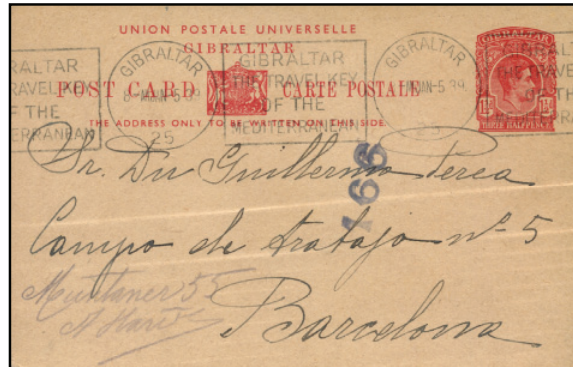 UNION POSTALE UNIVERSELLE
GIBRALTAR
POST CARD CARTE POSTALE
THE ADDRESS ONLY TO BE WRITTEN ON THIS SIDE
GIBRALTAR
THREE HALFPENCE
GIBRALTAR
JAN-5 39
25
GIBRALTAR
THE TRAVEL KEY
OF THE
MEDITERRANEAN
GIBRALTAR
JAN-5 39
25
RALTAR
RAVEL KEY
OF THE
RRANEAN
166
Sr. Dn Guillermo Perea
Campo de trabajo nº 5
Muntaner 55
Barcelona